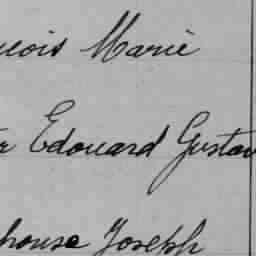 çois Marie
Edouard Gustav
phonse Joseph